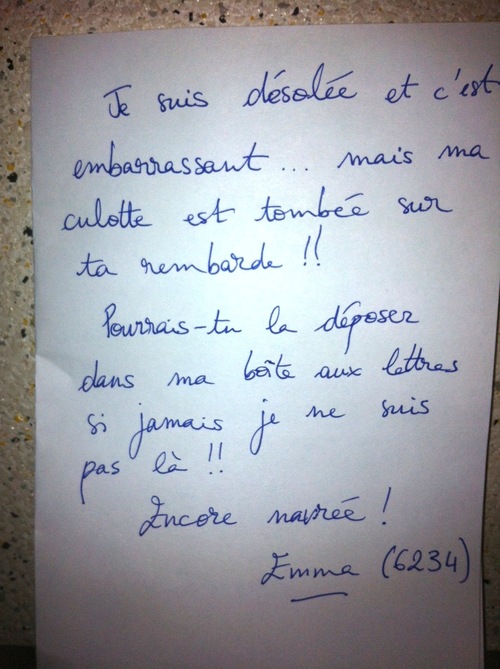 Je suis désolée et c'est
embarrassant... mais ma
culotte est tombée sur
ta rembarde !!
Pourrais-tu la déposer
dans ma boîte aux lettres
si jamais je ne suis
pas là !!
Encore navrée !
Emma (6234)